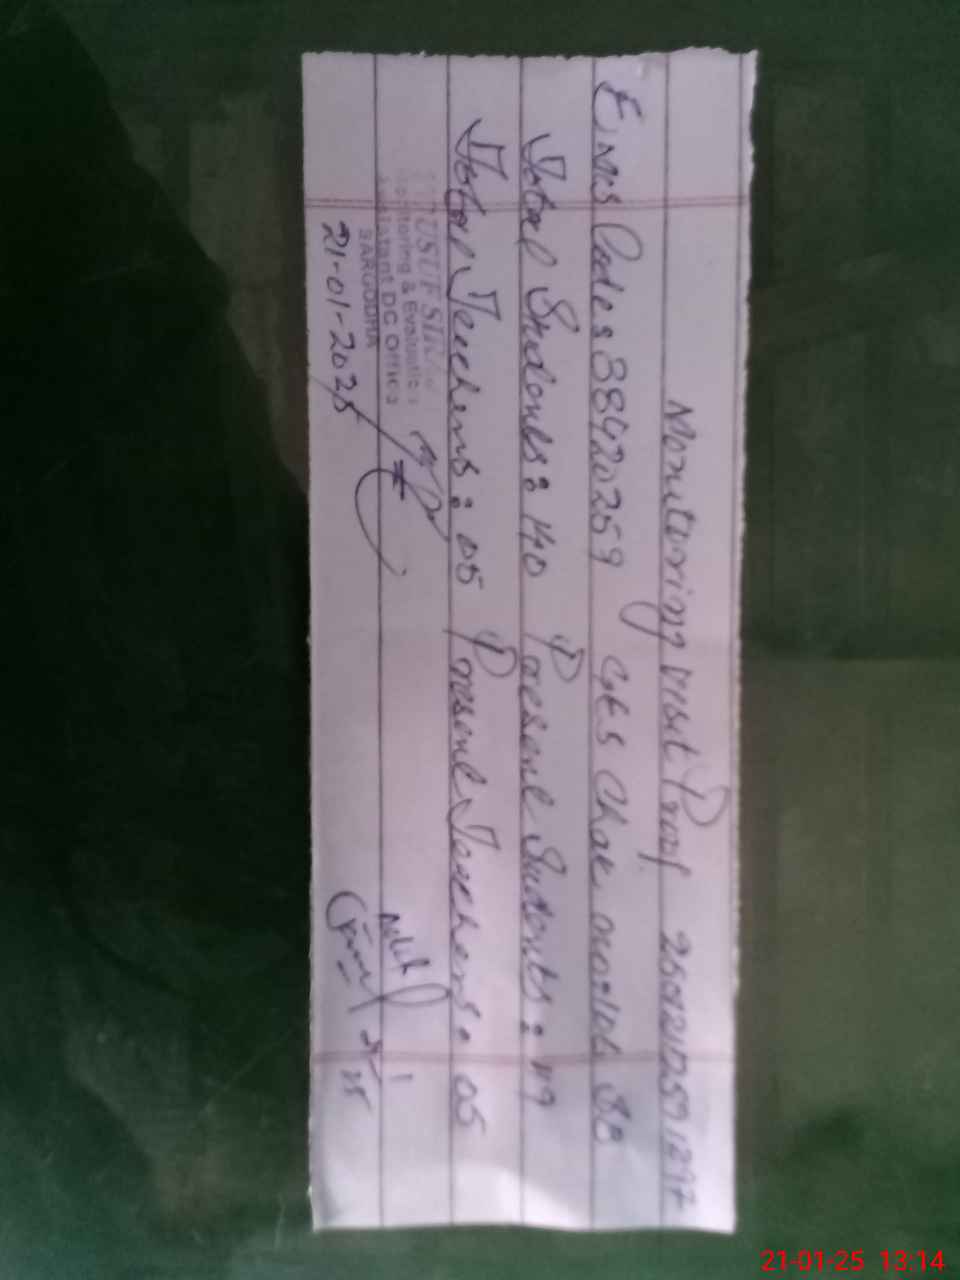 Monitoring visit Proof 25012112591297
Emis Code: 38420259 GES Chak no: 106 SB
Total Students: 140 Present Students: 119
Total Teachers: 05 Present Teachers: 05
YOUSUF
Monitoring & Evaluation
Assistant DC Office
SARGODHA
21-01-2025
21-01-25 13:14